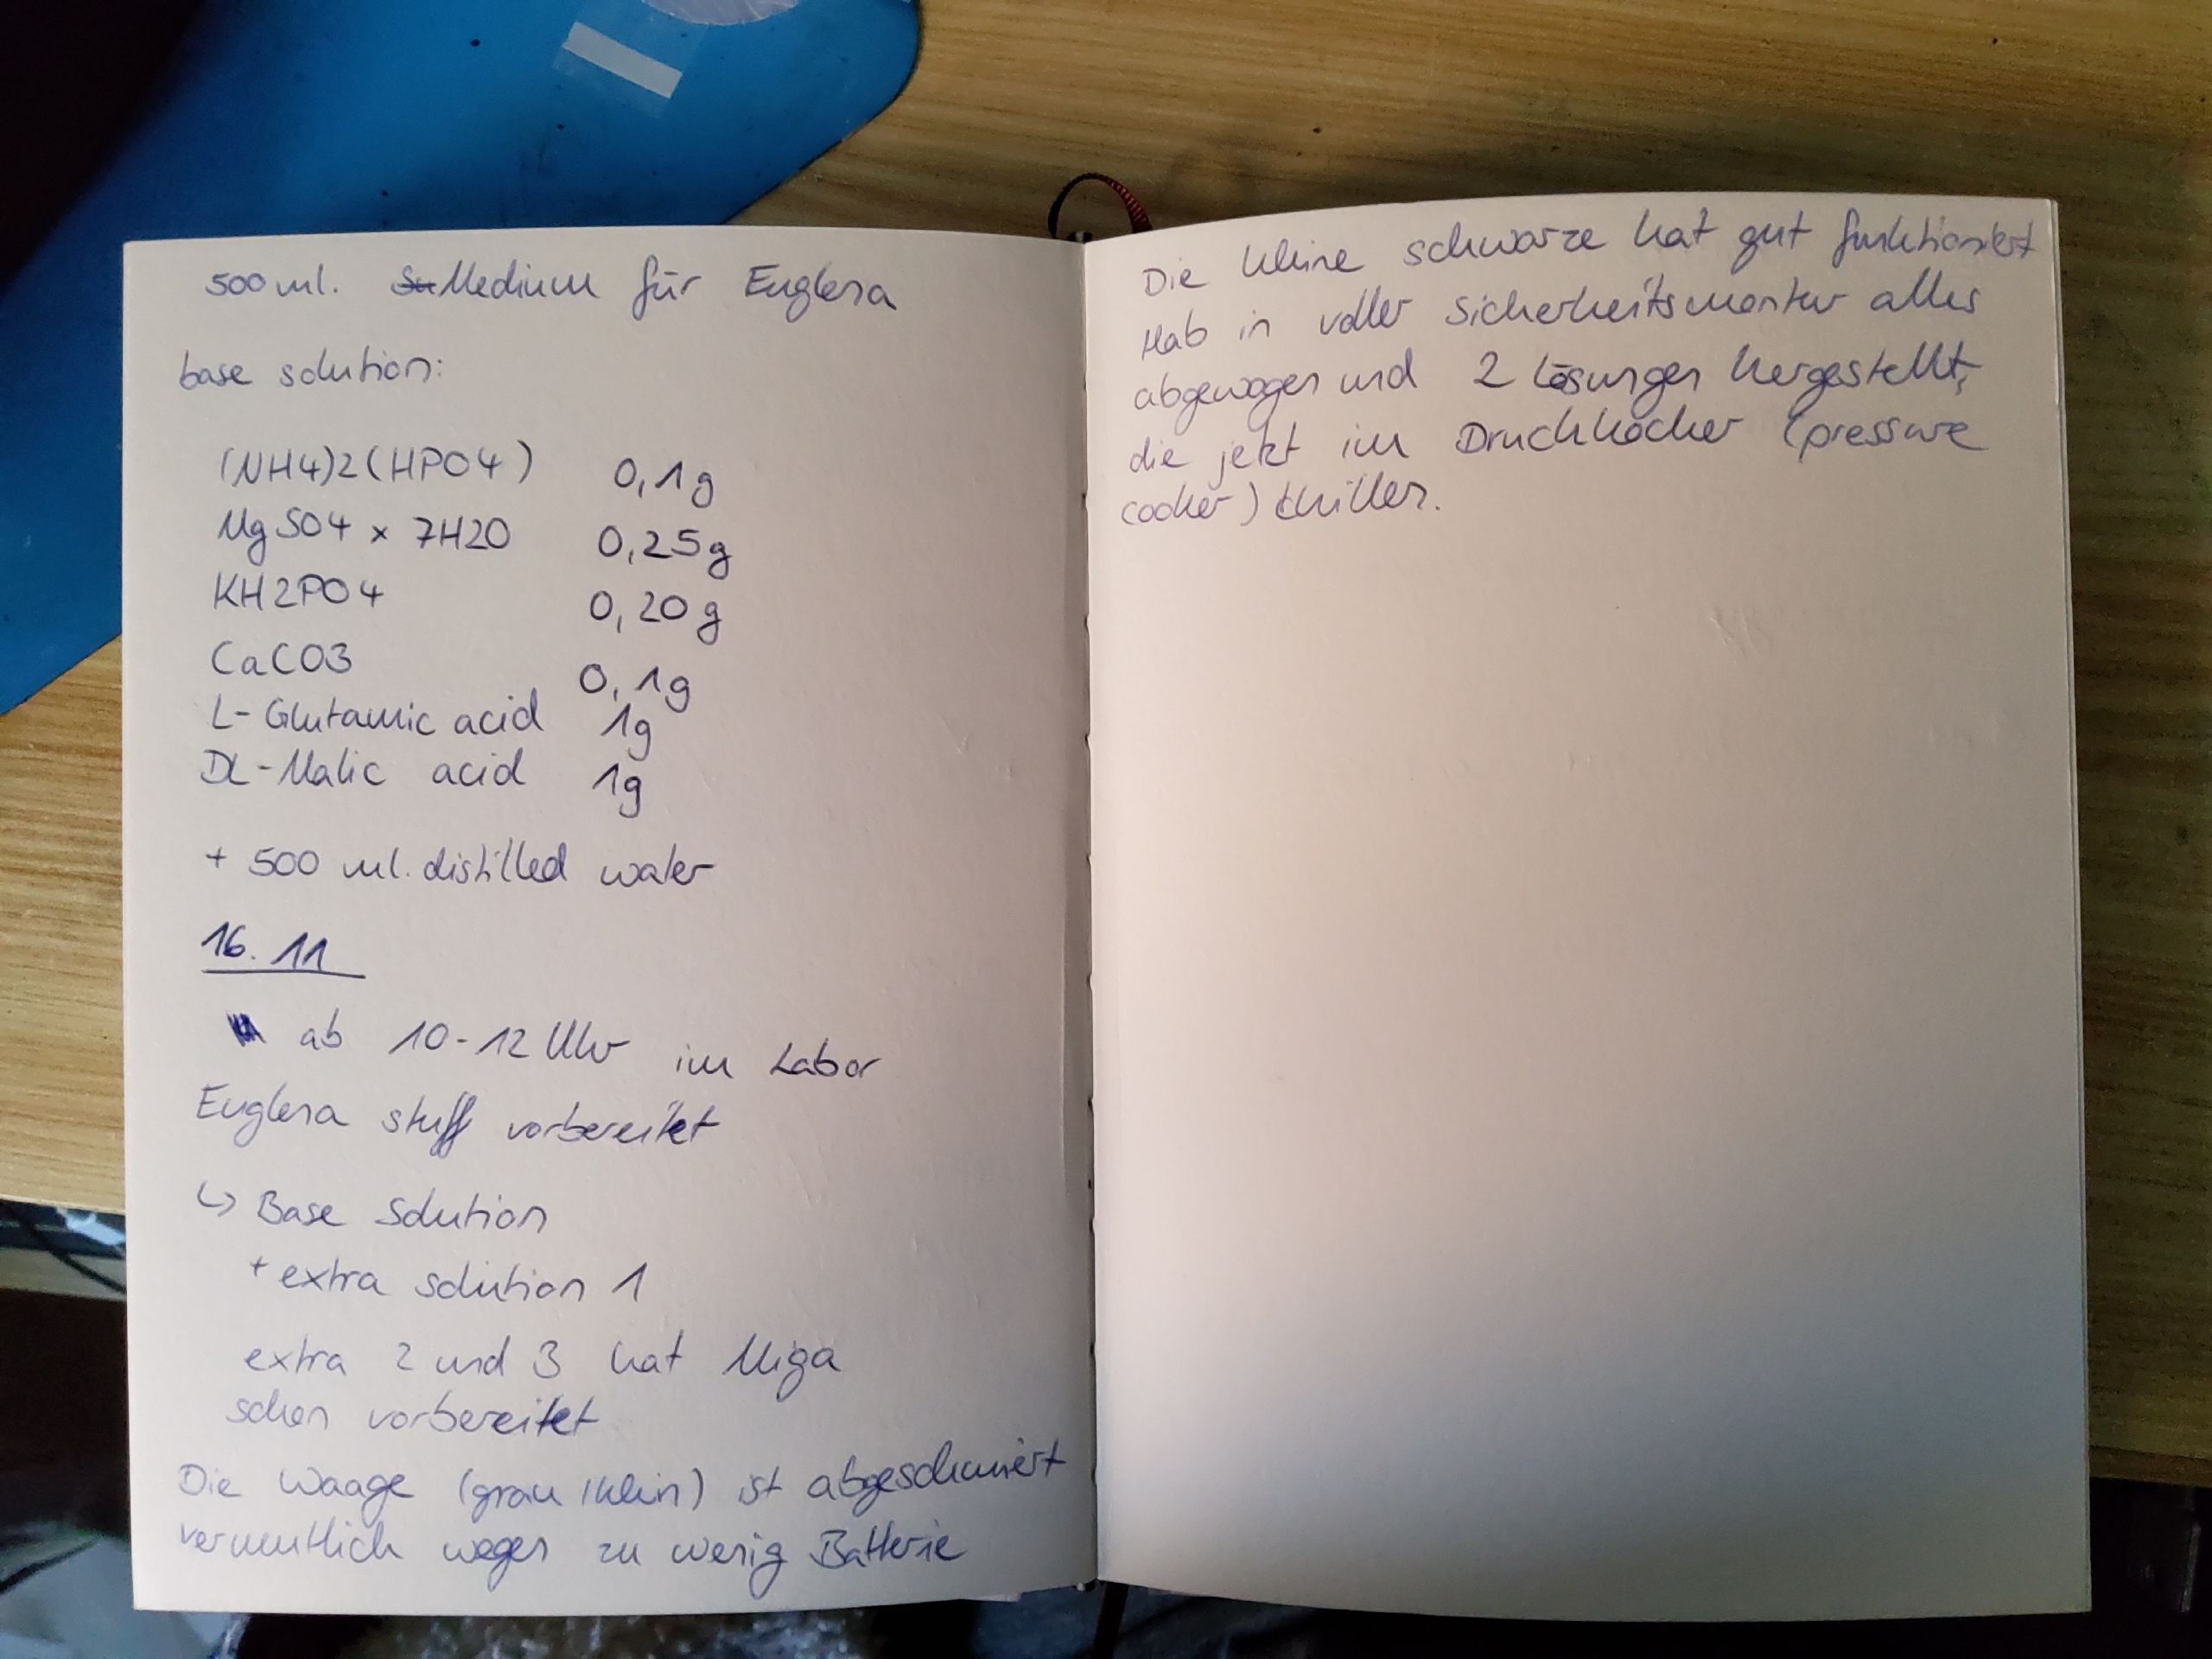 500 ml. Medium für Euglena
base solution:
(NH4)2(HPO4) 0,1g
MgSO4 x 7H2O 0,25g
KH2PO4 0,20g
CaCO3 0,1g
L-Glutamic acid 1g
DL-Malic acid 1g
+ 500 ml. distilled water
16. 11
ab 10-12 Uhr im Labor
Euglena stuff vorbereitet
↳ Base solution
+ extra solution 1
extra 2 und 3 hat Miga
schon vorbereitet
Die Waage (grau/klein) ist abgeschmiert
vermutlich wegen zu wenig Batterie
Die kleine schwarze hat gut funktioniert
Hab in voller Sicherheitsmontur alles
abgewogen und 2 Lösungen hergestellt,
die jetzt im Druckkocher (pressure
cooker) chillen.